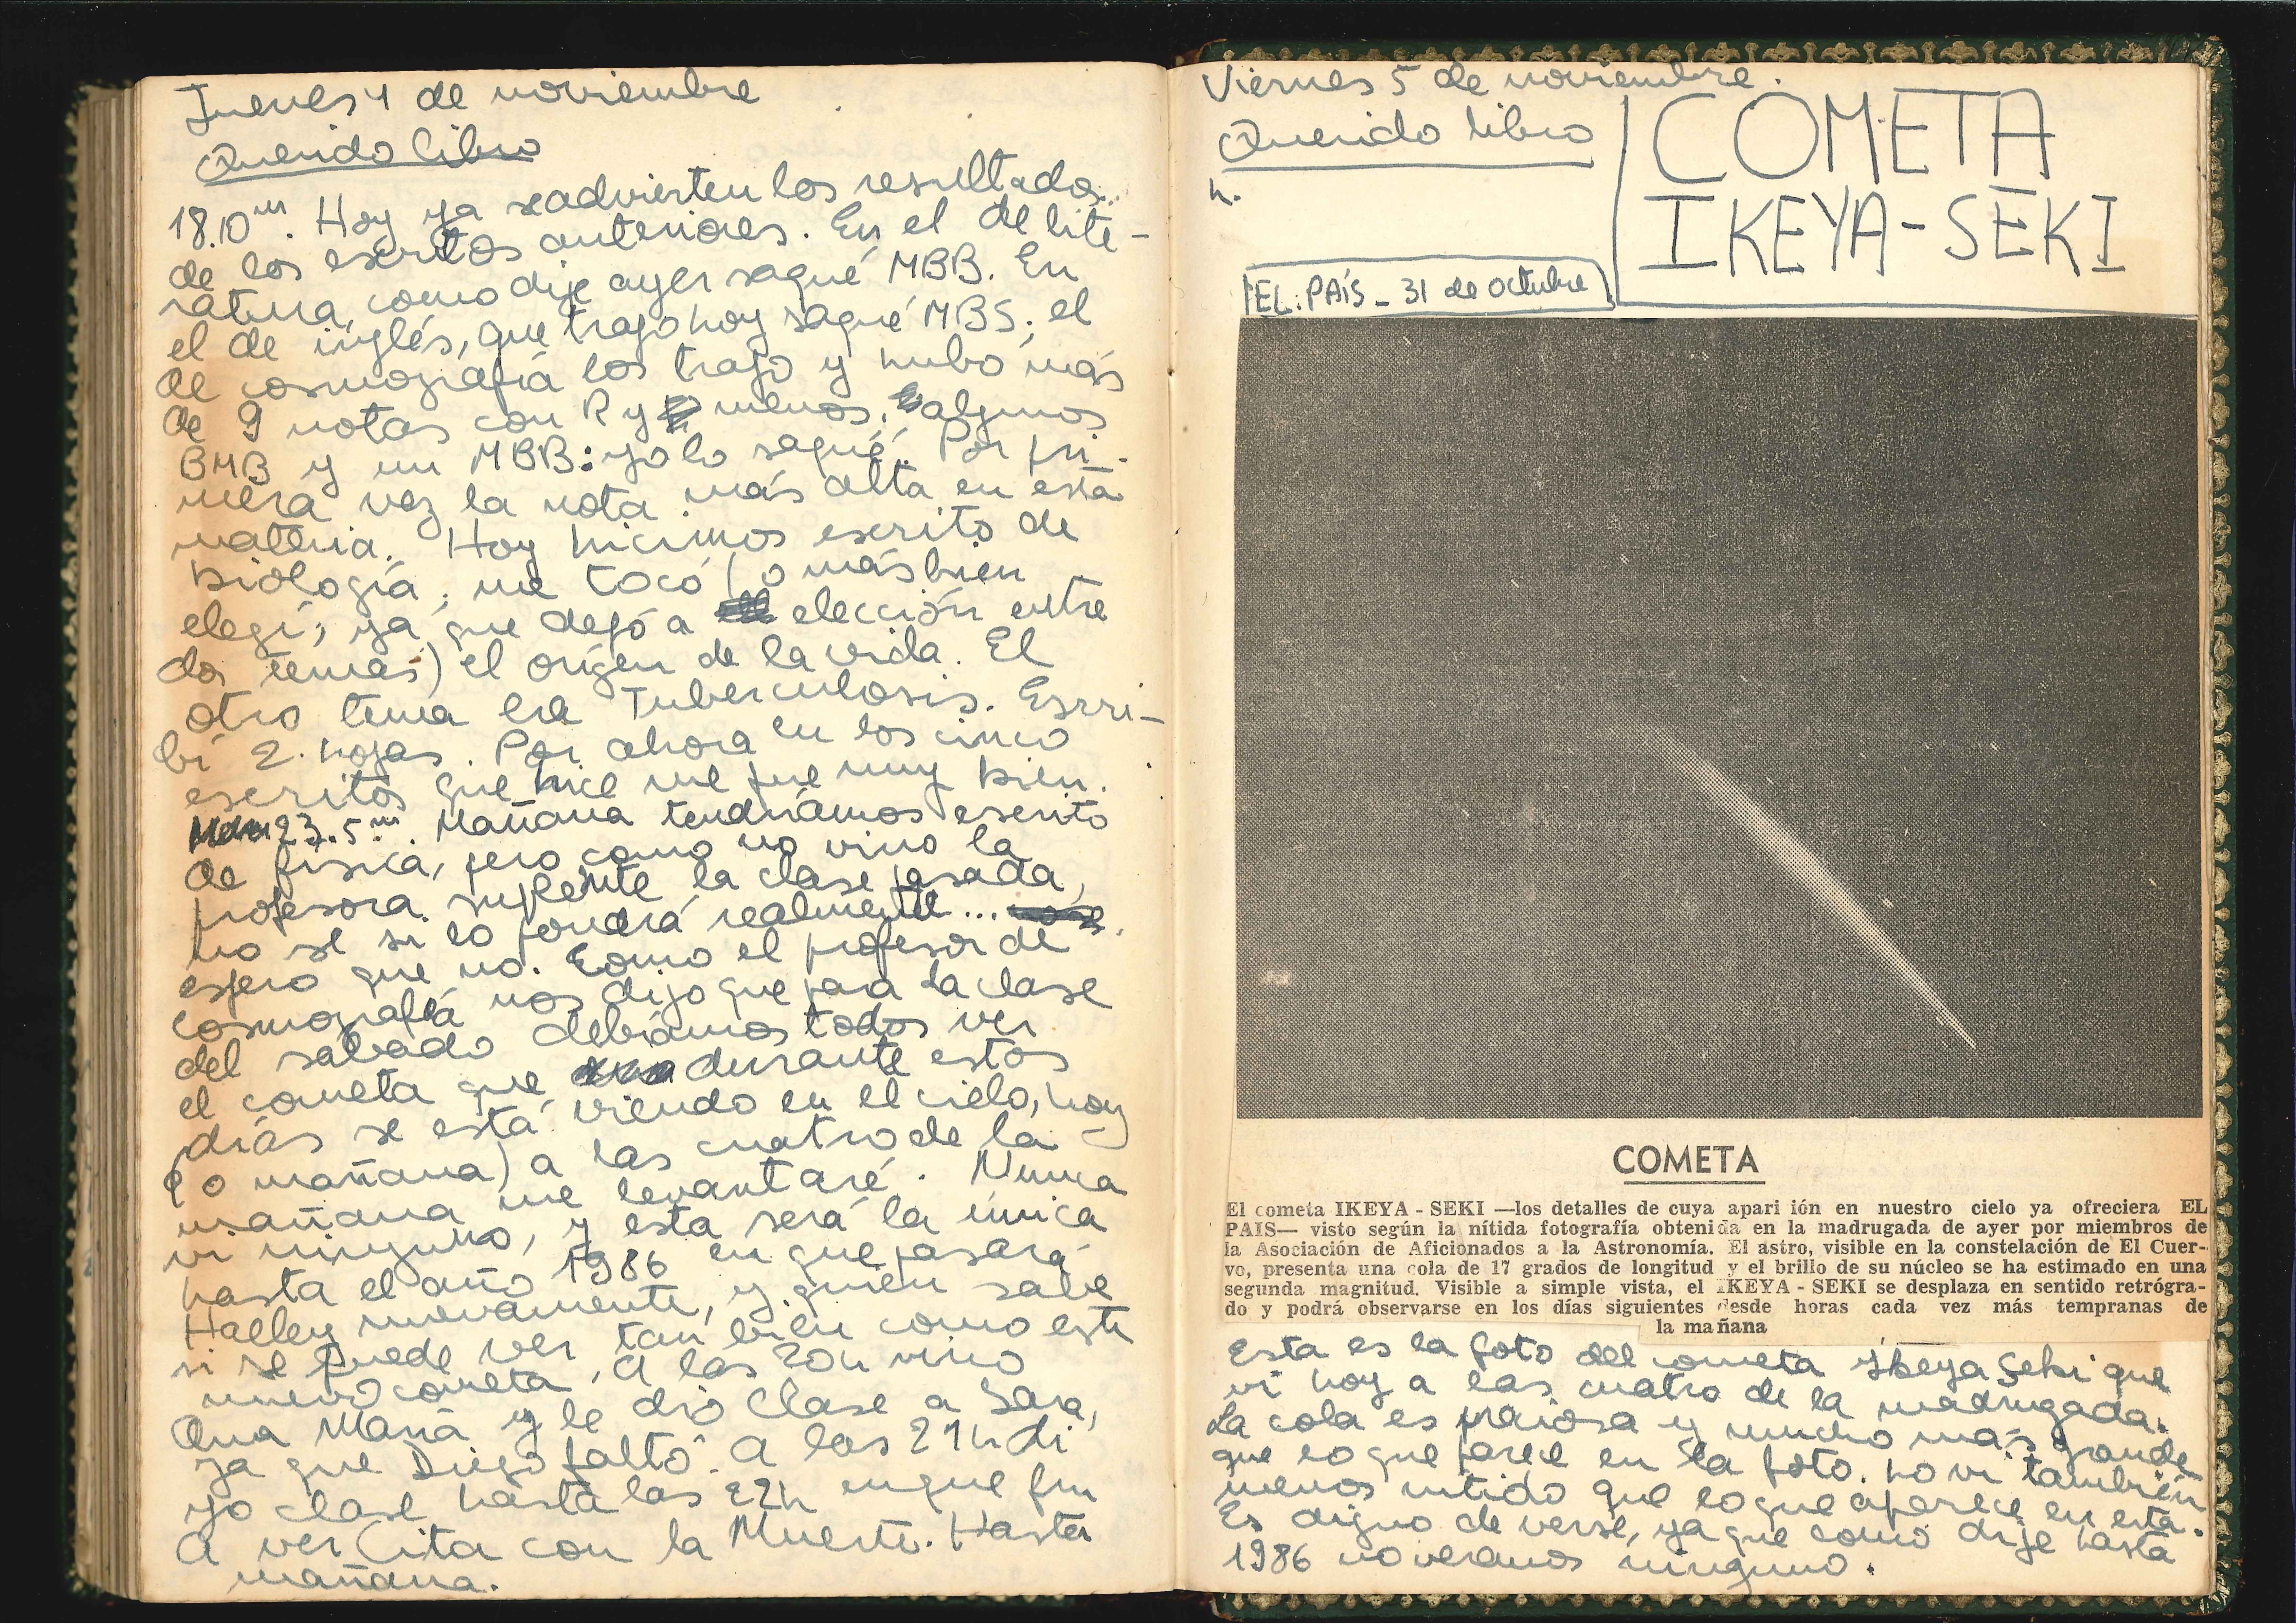 Jueves 4 de noviembre
Querido libro
18.10m. Hoy ya se advierten los resultados..
de los escritos anteriores. En el de lite-
ratura, como dije ayer saqué MBB. En
el de inglés, que trajo hoy saqué MBS; el
de cosmografía los trajo y hubo más
de 9 notas con R y menos, algunos
BMB y un MBB: yo lo saqué. Por pri-
mera vez la nota más alta en esta
materia. Hoy hicimos escrito de
biología; me tocó (o más bien
elegí, ya que dejó a elección entre
dos temas) el origen de la vida. El
otro tema era Tuberculosis. Escri-
bí 2 hojas. Por ahora en los cinco
escritos que hice me fue muy bien.
23.5m. Mañana tendríamos escrito
de física, pero como no vino la
profesora suplente la clase pasada,
no se si lo pondrá realmente...
espero que no. Como el profesor de
cosmografía nos dijo que para la clase
del sábado debíamos todos ver
el cometa que durante estos
días se está viendo en el cielo, hoy
(o mañana) a las cuatro de la
mañana me levantaré. Nunca
vi ninguno, y esta será la única
hasta el año 1986 en que pasará
Halley nuevamente, y quien sabe
si se puede ver tan bien como este
nuevo cometa. A las 20h vino
Ana María y le dio clase a Sara,
ya que Diego faltó. A las 21h di
yo clase hasta las 22h en que fui
a ver Cita con la Muerte. Hasta
mañana.
Viernes 5 de noviembre.
Querido libro
h.
COMETA
IKEYA-SEKI
EL PAÍS - 31 de octubre
COMETA
El cometa IKEYA - SEKI —los detalles de cuya apari ión en nuestro cielo ya ofreciera EL
PAIS— visto según la nítida fotografía obtenida en la madrugada de ayer por miembros de
la Asociación de Aficionados a la Astronomía. El astro, visible en la constelación de El Cuer-
vo, presenta una cola de 17 grados de longitud y el brillo de su núcleo se ha estimado en una
segunda magnitud. Visible a simple vista, el IKEYA - SEKI se desplaza en sentido retrógra-
do y podrá observarse en los días siguientes desde horas cada vez más tempranas de
la mañana
Esta es la foto del cometa Ikeya Seki que
vi hoy a las cuatro de la madrugada.
La cola es preciosa y mucho más grande
que lo que parece en la foto. Lo vi también
menos nítido que lo que aparece en esta.
Es digno de verse, ya que como dije hasta
1986 no veremos ninguno.